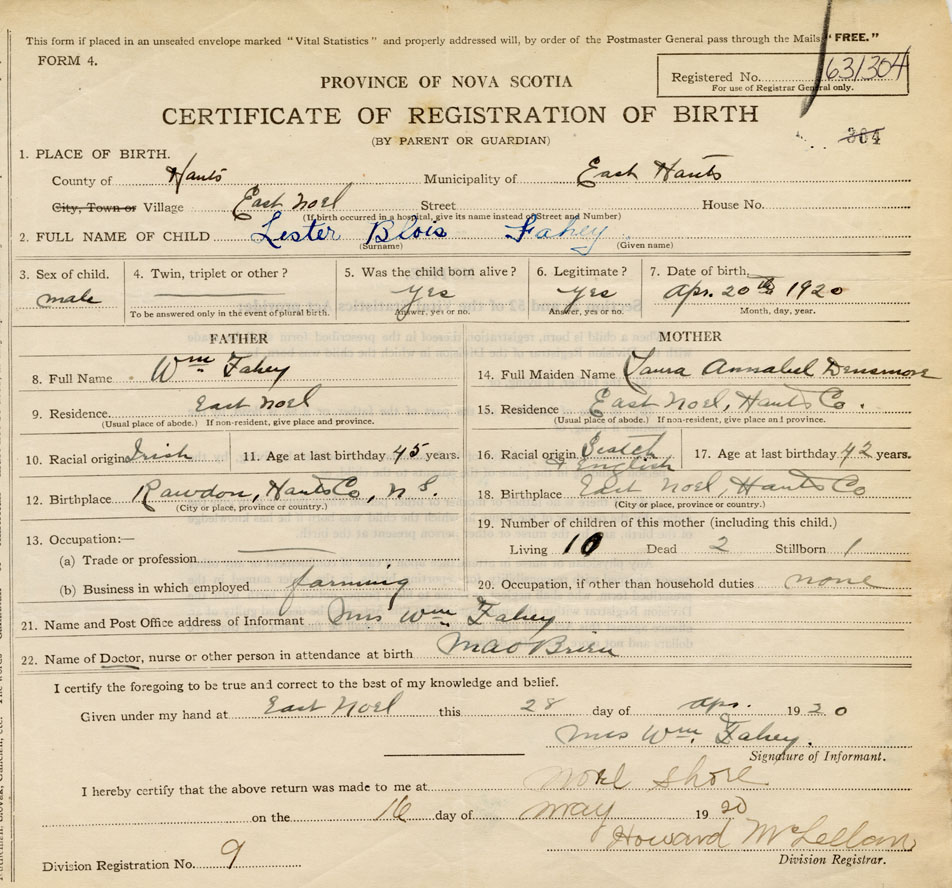 This form if placed in an unsealed envelope marked "Vital Statistics" and properly addressed will, by order of the Postmaster General pass through the Mails "FREE."
FORM 4.
Registered No. 631304
For use of Registrar General only.
PROVINCE OF NOVA SCOTIA
CERTIFICATE OF REGISTRATION OF BIRTH
(BY PARENT OR GUARDIAN)
304
1. PLACE OF BIRTH.
County of Hants Municipality of East Hants
City, Town or Village East Noel Street House No.
(If birth occurred in a hospital, give its name instead of Street and Number)
2. FULL NAME OF CHILD Lester Blois Fahey
(Surname) (Given name)
3. Sex of child. 4. Twin, triplet or other? 5. Was the child born alive? 6. Legitimate? 7. Date of birth,
male yes yes Apr. 20th 1920
To be answered only in the event of plural birth. Answer, yes or no. Answer, yes or no. Month, day, year.
FATHER MOTHER
8. Full Name Wm Fahey 14. Full Maiden Name Laura Annabel Densmore
9. Residence East Noel 15. Residence East Noel, Hants Co.
(Usual place of abode.) If non-resident, give place and province. (Usual place of abode.) If non-resident, give place and province.
10. Racial origin Irish 11. Age at last birthday 45 years. 16. Racial origin Scotch + English 17. Age at last birthday 42 years.
12. Birthplace Rawdon, Hants Co, N S. 18. Birthplace East Noel, Hants Co
(City or place, province or country.) (City or place, province or country.)
13. Occupation:— 19. Number of children of this mother (including this child.)
(a) Trade or profession Living 10 Dead 2 Stillborn 1
(b) Business in which employed farming 20. Occupation, if other than household duties none
21. Name and Post Office address of Informant Mrs Wm Fahey
22. Name of Doctor, nurse or other person in attendance at birth MacBrien
I certify the foregoing to be true and correct to the best of my knowledge and belief.
Given under my hand at East Noel this 28 day of Apr. 1920
Mrs Wm. Fahey.
Signature of Informant.
I hereby certify that the above return was made to me at Noel Shore
on the 16 day of May 1920
Howard McLellan
Division Registrar.
Division Registration No. 9